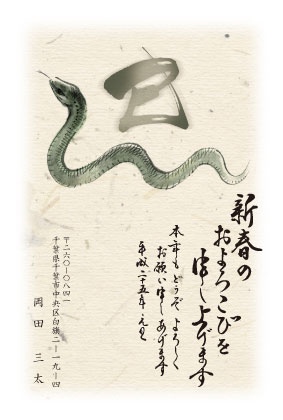 巳
新春の
およろこびを
申し上げます
本年もどうぞよろしく
お願い申しあげます
平成二十五年 元旦
〒二六〇-〇八四一
千葉県千葉市中央区白旗二-一九-四
岡田 三太